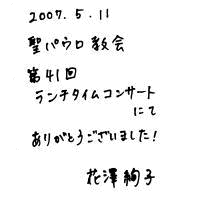 2007.5.11
聖パウロ教会
第41回
ランチタイムコンサート
にて
ありがとうございました!
花澤絢子